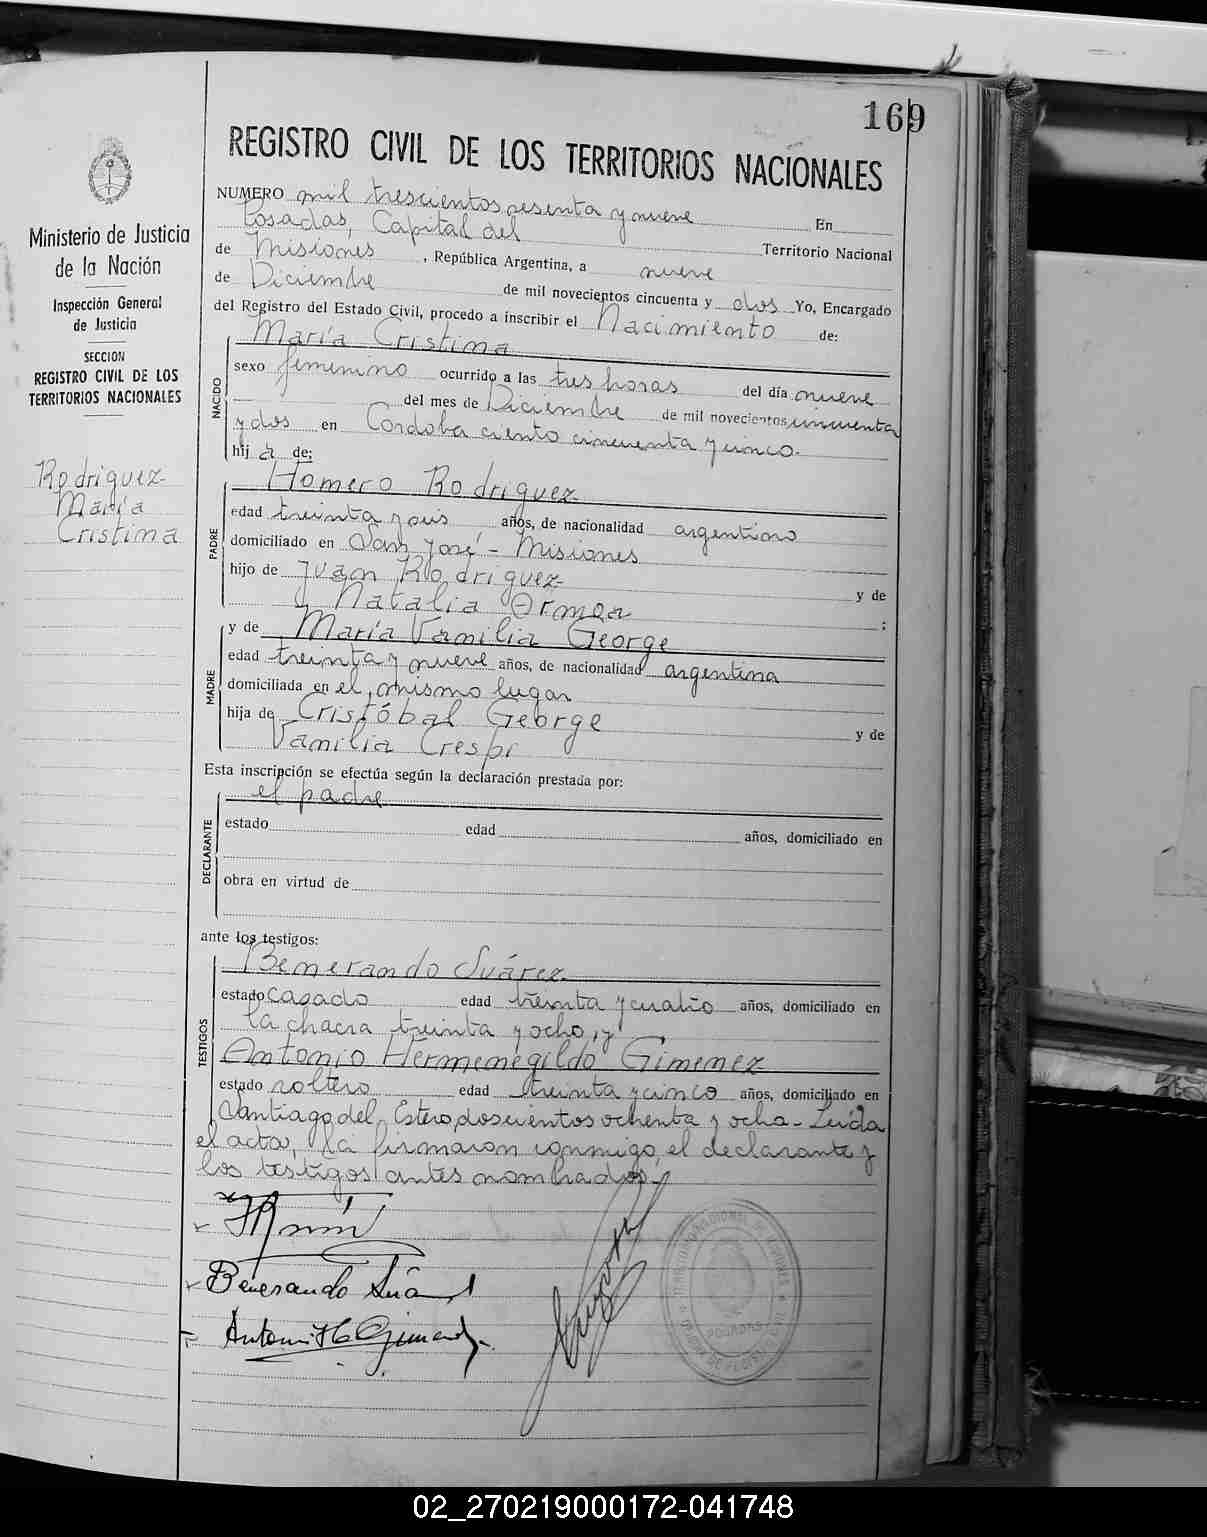 169
REGISTRO CIVIL DE LOS TERRITORIOS NACIONALES
Ministerio de Justicia
de la Nación
Inspección General
de Justicia
SECCION
REGISTRO CIVIL DE LOS
TERRITORIOS NACIONALES
Rodriguez
María
Cristina
NUMERO mil trescientos sesenta y nueve En
Posadas, Capital del Territorio Nacional
de Misiones, República Argentina, a nueve
de Diciembre de mil novecientos cincuenta y dos Yo, Encargado
del Registro del Estado Civil, procedo a inscribir el Nacimiento de:
NACIDO
María Cristina
sexo femenino ocurrido a las tres horas del día nueve
del mes de Diciembre de mil novecientos cincuenta
y dos en Córdoba ciento cincuenta y cinco.
hij a de:
PADRE
Homero Rodriguez
edad treinta y seis años, de nacionalidad argentino
domiciliado en San José - Misiones
hijo de Juan Rodriguez y de
Natalia Ormea ;
MADRE
y de María Vamilia George
edad treinta y nueve años, de nacionalidad argentina
domiciliada en el mismo lugar
hija de Cristóbal George y de
Vamilia Crespi
Esta inscripción se efectúa según la declaración prestada por:
DECLARANTE
el padre
estado edad años, domiciliado en
obra en virtud de
ante los testigos:
TESTIGOS
Benerando Suárez
estado casado edad treinta y cuatro años, domiciliado en
la chacra treinta y ocho, y
Antonio Hermenegildo Gimenez
estado soltero edad treinta y cinco años, domiciliado en
Santiago del Estero doscientos ochenta y ocho - Leída
el acta, la firmaron conmigo, el declarante y
los testigos antes nombrados.
Benerando Suárez
Antonio H Gimenez
POSADAS
02_270219000172-041748